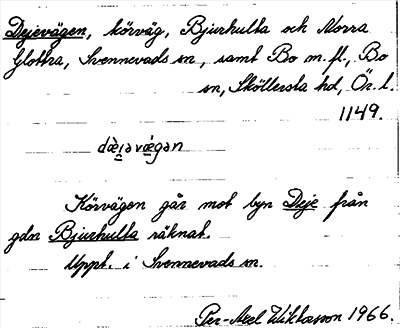 Dejevägen, körväg, Bjurhulta och Norra
Glottra, Svennevads sn, samt Bo m.fl., Bo
sn, Sköllersta hd, Ör. l.
1149.
Körvägen går mot byn Deje från
gdn Bjurhulta räknat.
Uppt. i Svennevads sn.
Per-Axel Wiktorsson 1966.